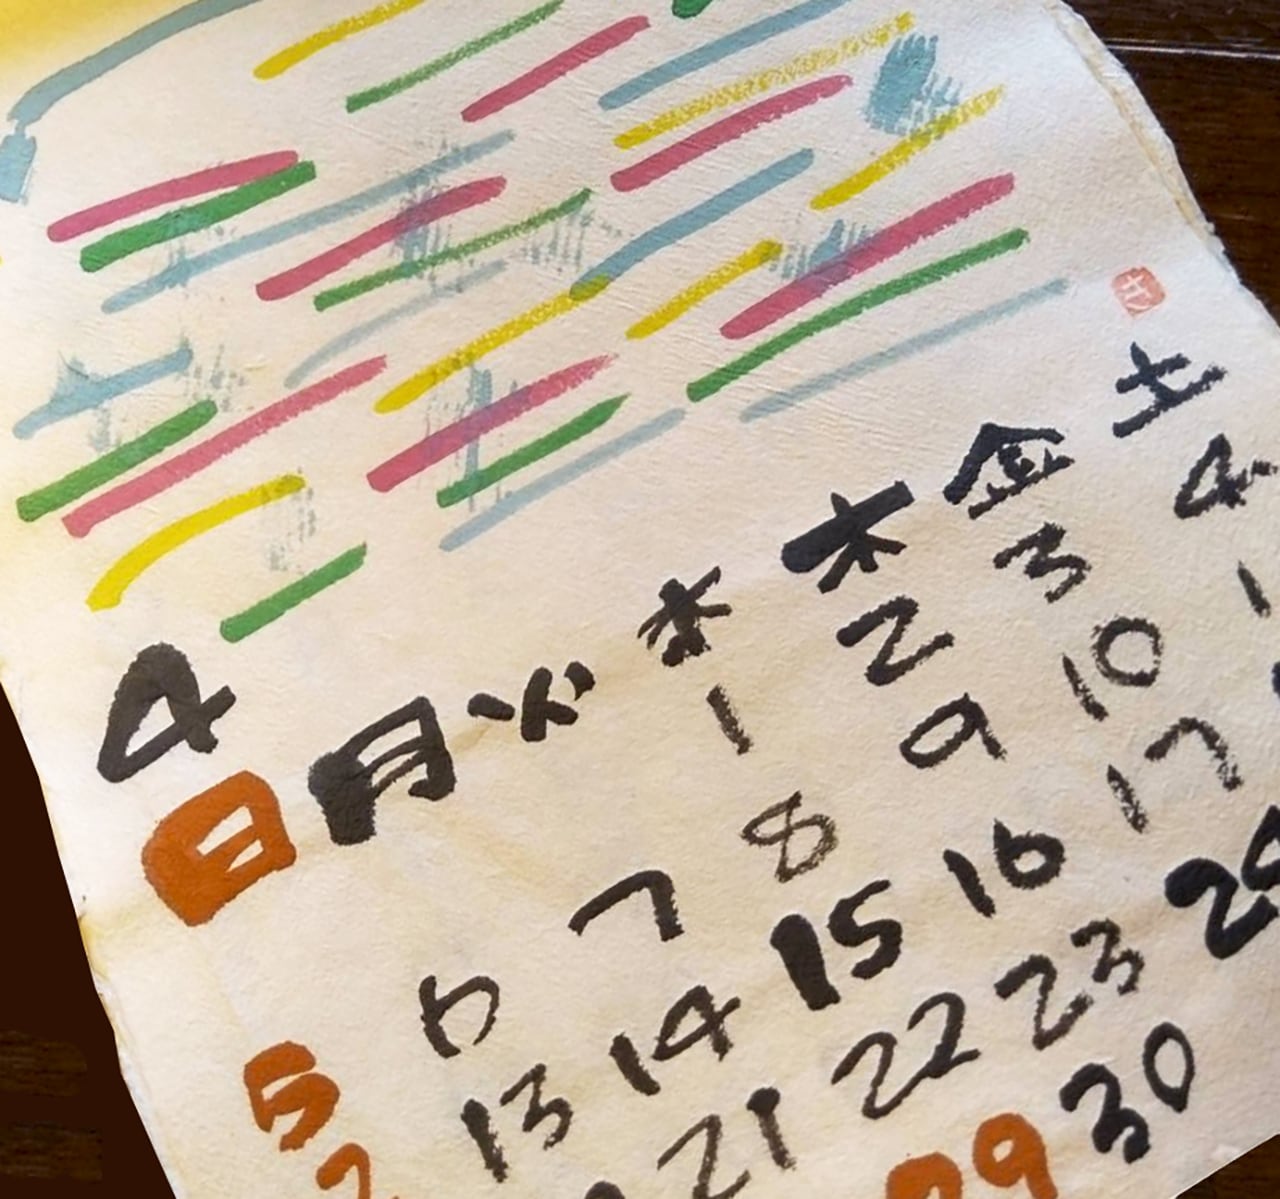 4
日 月 火 水 木 金 土
1 2 3 4
5 6 7 8 9 10
13 14 15 16 17
21 22 23
29 30